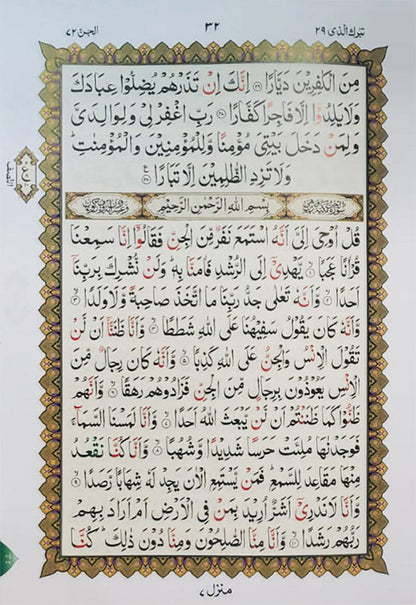 تبرك الذی ۲۹ ۳۲ الجن ۷۲
مِنَ الْكٰفِرِيْنَ دَيَّارًا ۝ اِنَّكَ اِنْ تَذَرْهُمْ يُضِلُّوْا عِبَادَكَ
وَلَا يَلِدُوْۤا اِلَّا فَاجِرًا كَفَّارًا ۝ رَبِّ اغْفِرْ لِيْ وَلِوَالِدَيَّ
وَلِمَنْ دَخَلَ بَيْتِيَ مُؤْمِنًا وَّلِلْمُؤْمِنِيْنَ وَالْمُؤْمِنٰتِ ؕ
وَلَا تَزِدِ الظّٰلِمِيْنَ اِلَّا تَبَارًا ۝
بِسْمِ اللّٰهِ الرَّحْمٰنِ الرَّحِيْمِ
قُلْ اُوْحِيَ اِلَيَّ اَنَّهُ اسْتَمَعَ نَفَرٌ مِّنَ الْجِنِّ فَقَالُوْۤا اِنَّا سَمِعْنَا
قُرْاٰنًا عَجَبًا ۝ يَّهْدِيْۤ اِلَى الرُّشْدِ فَاٰمَنَّا بِهٖ ؕ وَلَنْ نُّشْرِكَ بِرَبِّنَاۤ
اَحَدًا ۝ وَّاَنَّهٗ تَعٰلٰى جَدُّ رَبِّنَا مَا اتَّخَذَ صَاحِبَةً وَّلَا وَلَدًا ۝
وَّاَنَّهٗ كَانَ يَقُوْلُ سَفِيْهُنَا عَلَى اللّٰهِ شَطَطًا ۝ وَّاَنَّا ظَنَنَّاۤ اَنْ لَّنْ
تَقُوْلَ الْاِنْسُ وَالْجِنُّ عَلَى اللّٰهِ كَذِبًا ۝ وَّاَنَّهٗ كَانَ رِجَالٌ مِّنَ
الْاِنْسِ يَعُوْذُوْنَ بِرِجَالٍ مِّنَ الْجِنِّ فَزَادُوْهُمْ رَهَقًا ۝ وَّاَنَّهُمْ
ظَنُّوْا كَمَا ظَنَنْتُمْ اَنْ لَّنْ يَّبْعَثَ اللّٰهُ اَحَدًا ۝ وَّاَنَّا لَمَسْنَا السَّمَآءَ
فَوَجَدْنٰهَا مُلِئَتْ حَرَسًا شَدِيْدًا وَّشُهُبًا ۝ وَّاَنَّا كُنَّا نَقْعُدُ
مِنْهَا مَقَاعِدَ لِلسَّمْعِ ؕ فَمَنْ يَّسْتَمِعِ الْاٰنَ يَجِدْ لَهٗ شِهَابًا رَّصَدًا ۝
وَّاَنَّا لَا نَدْرِيْۤ اَشَرٌّ اُرِيْدَ بِمَنْ فِي الْاَرْضِ اَمْ اَرَادَ بِهِمْ
رَبُّهُمْ رَشَدًا ۝ وَّاَنَّا مِنَّا الصّٰلِحُوْنَ وَمِنَّا دُوْنَ ذٰلِكَ ؕ كُنَّا
منزل ۷